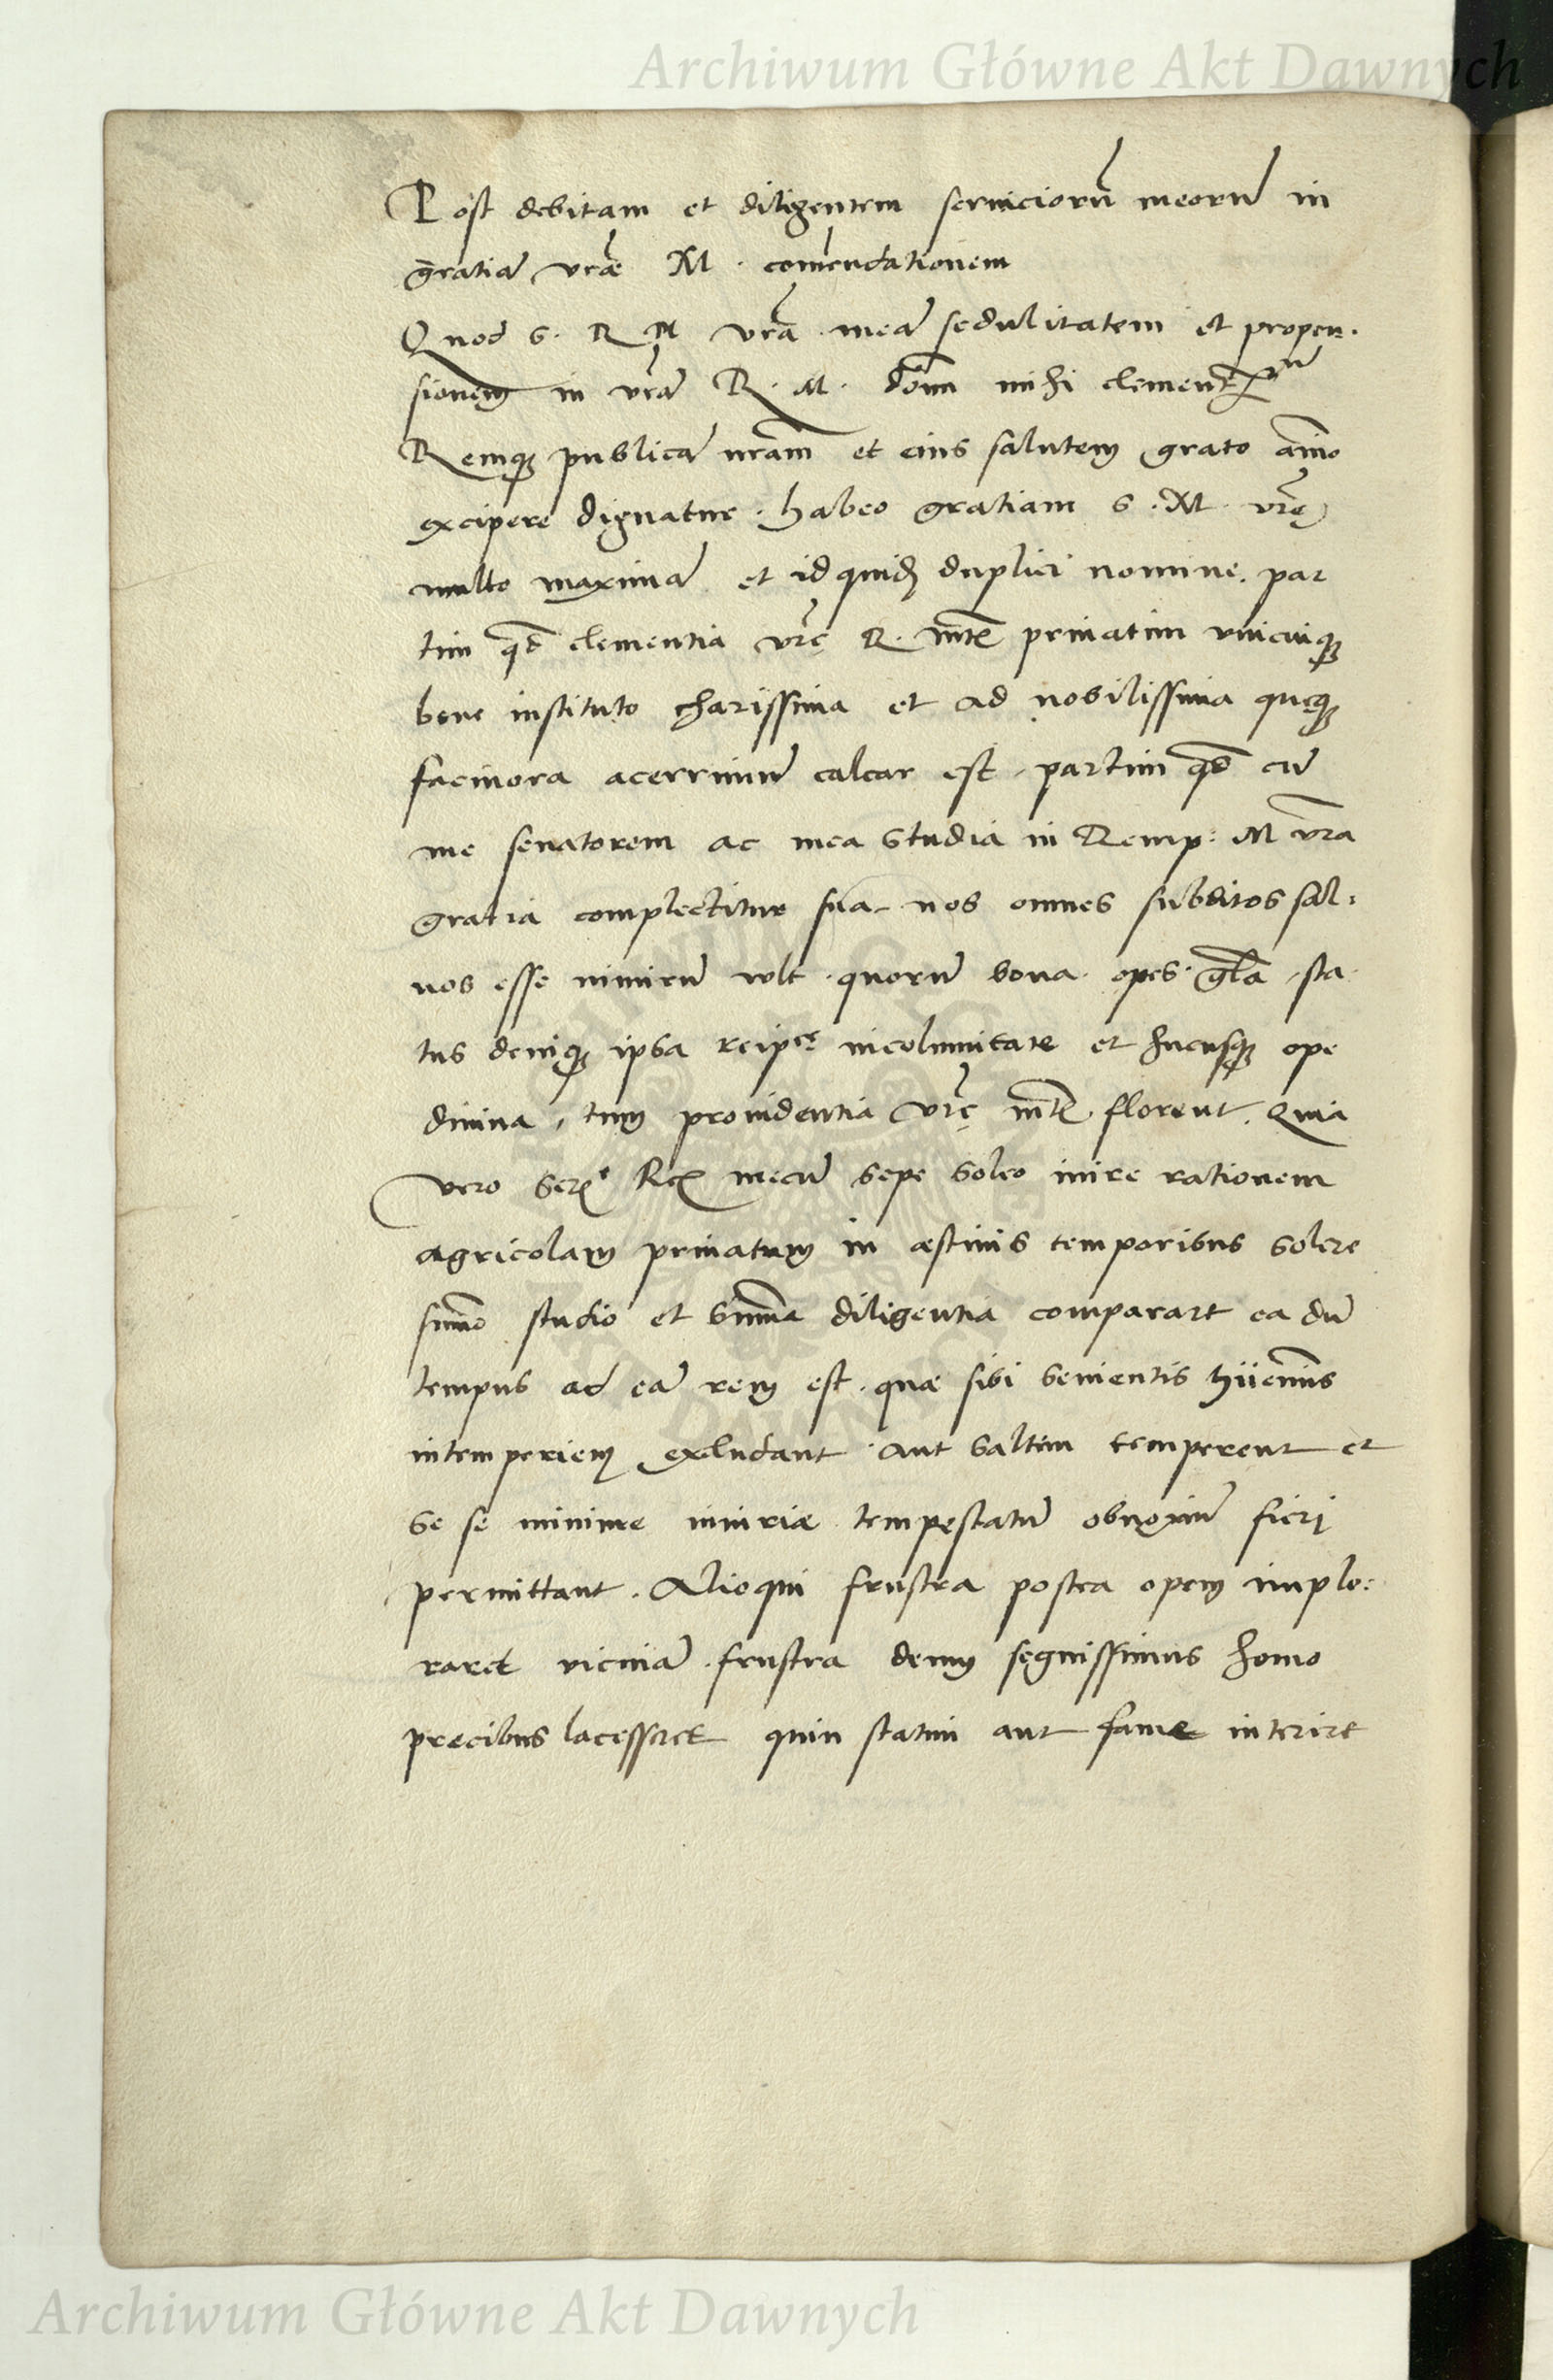 Archiwum Główne Akt Dawnych
Post debitam et diligentem serviciorū meorū in
gratiā vrāe M. comēndationem
Quod S. R M vrā meā sedulitatem et propen:
sionem in vrā R. M. dōm mihi clement
Remq; publicā nrām et eius salutem grato aīo
excipere dignatur. habeo gratiam S. M. vrę
multo maximā et id quidē duplici nomine. par
tim qđ clementia vrę R. mtis privatim vnicuiq;
bene instituto charissima et ad nobilissima quęq;
facinora acerrimū calcar est. partim qđ cū
me senatorem ac mea studia in Remp: M vrā
gratia complectitur sua. nos omnes subditos sal:
vos esse nimirū vult. quorū bona. opes. glā. sta
tus deniq; ipsa reipce incolumitate et hucusq; ope
divina, tum providentia vrę mtis florent. Quia
vero Serme Rex mecū sepe soleo inire rationem
agricolam privatum in æstivis temporibus solere
sūmo studio et sūmma diligentia comparare ea dū
tempus ad eā rem est. quæ sibi venientis hiiemis
intemperiem excludant. aut saltim temperent et
se se minime iniuriæ tempestatū obnoxiū fieri
permittant. Alioqui frustra postea opem implo:
raret viciniā. frustra demū segnissimus homo
precibus lacesseret quin statim aut fame interire
Archiwum Główne Akt Dawnych